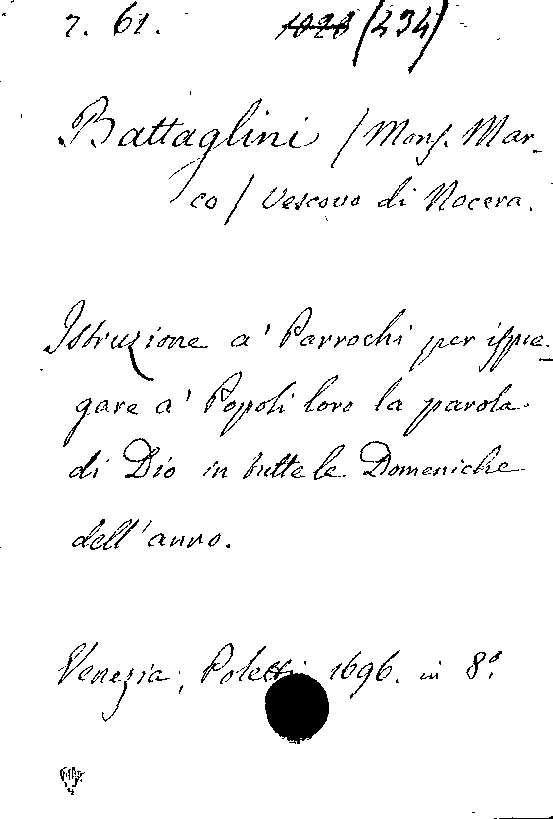 7. 61. 1028 (234)
Battaglini / Mons. Mar-
co / Vescovo di Nocera.
Istruzione a' Parrochi per ispie-
gare a' Popoli loro la parola
di Dio in tutte le Domeniche
dell'anno.
Venezia, Poletti 1696. in 8º.